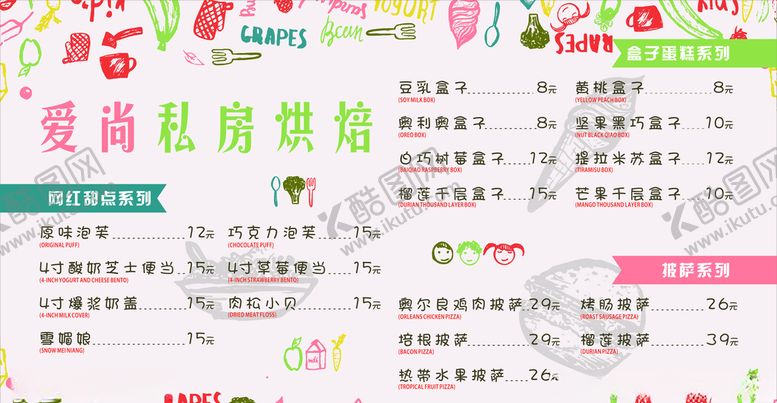 YOGURT
GRAPES
Bean
爱尚私房烘焙
网红甜点系列
原味泡芙 12元
(ORIGINAL PUFF)
巧克力泡芙 15元
(CHOCOLATE PUFF)
4寸酸奶芝士便当 15元
(4-INCH YOGURT AND CHEESE BENTO)
4寸草莓便当 15元
(4-INCH STRAWBERRY BENTO)
4寸爆浆奶盖 15元
(4-INCH MILK COVER)
肉松小贝 15元
(DRIED MEAT FLOSS)
雪媚娘 15元
(SNOW MEI NIANG)
盒子蛋糕系列
豆乳盒子 8元
(SOY MILK BOX)
黄桃盒子 8元
(YELLOW PEACH BOX)
奥利奥盒子 8元
(OREO BOX)
坚果黑巧盒子 10元
(NUT BLACK QIAO BOX)
白巧树莓盒子 12元
(BAIQIAO RASPBERRY BOX)
提拉米苏盒子 12元
(TIRAMISU BOX)
榴莲千层盒子 15元
(DURIAN THOUSAND LAYER BOX)
芒果千层盒子 10元
(MANGO THOUSAND LAYER BOX)
披萨系列
奥尔良鸡肉披萨 29元
(ORLEANS CHICKEN PIZZA)
烤肠披萨 26元
(ROAST SAUSAGE PIZZA)
培根披萨 29元
(BACON PIZZA)
榴莲披萨 39元
(DURIAN PIZZA)
热带水果披萨 26元
(TROPICAL FRUIT PIZZA)
酷图网
www.ikutu.com